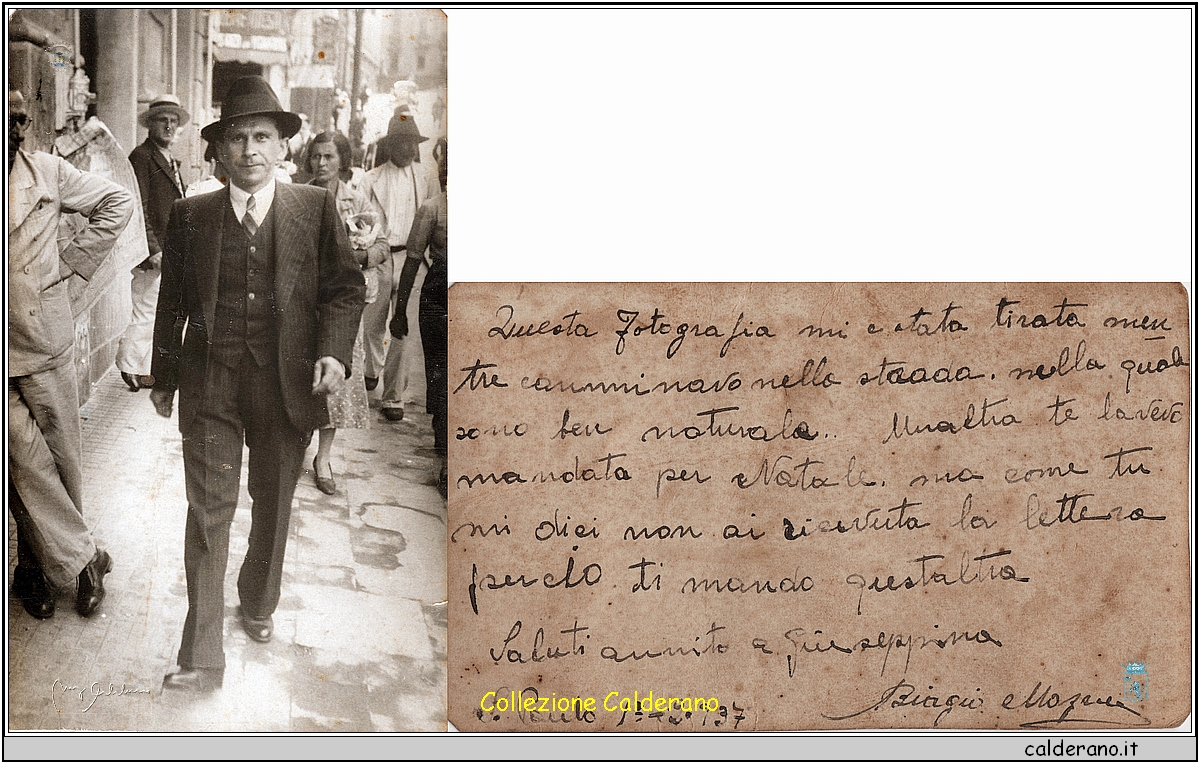 Questa Fotografia mi e stata tirata men
tre camminavo nella strada. nella quale
sono ben naturale.. Unaltra te lavevo
mandata per Natale. ma come tu
mi dici non ai ricevuta la lettera
perciò ti mando questaltra
Saluti aunito a Giuseppina
Biagio
S. Paulo 37
Collezione Calderano
calderano.it